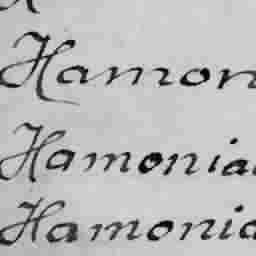 Hamon
Hamonia
Hamonia